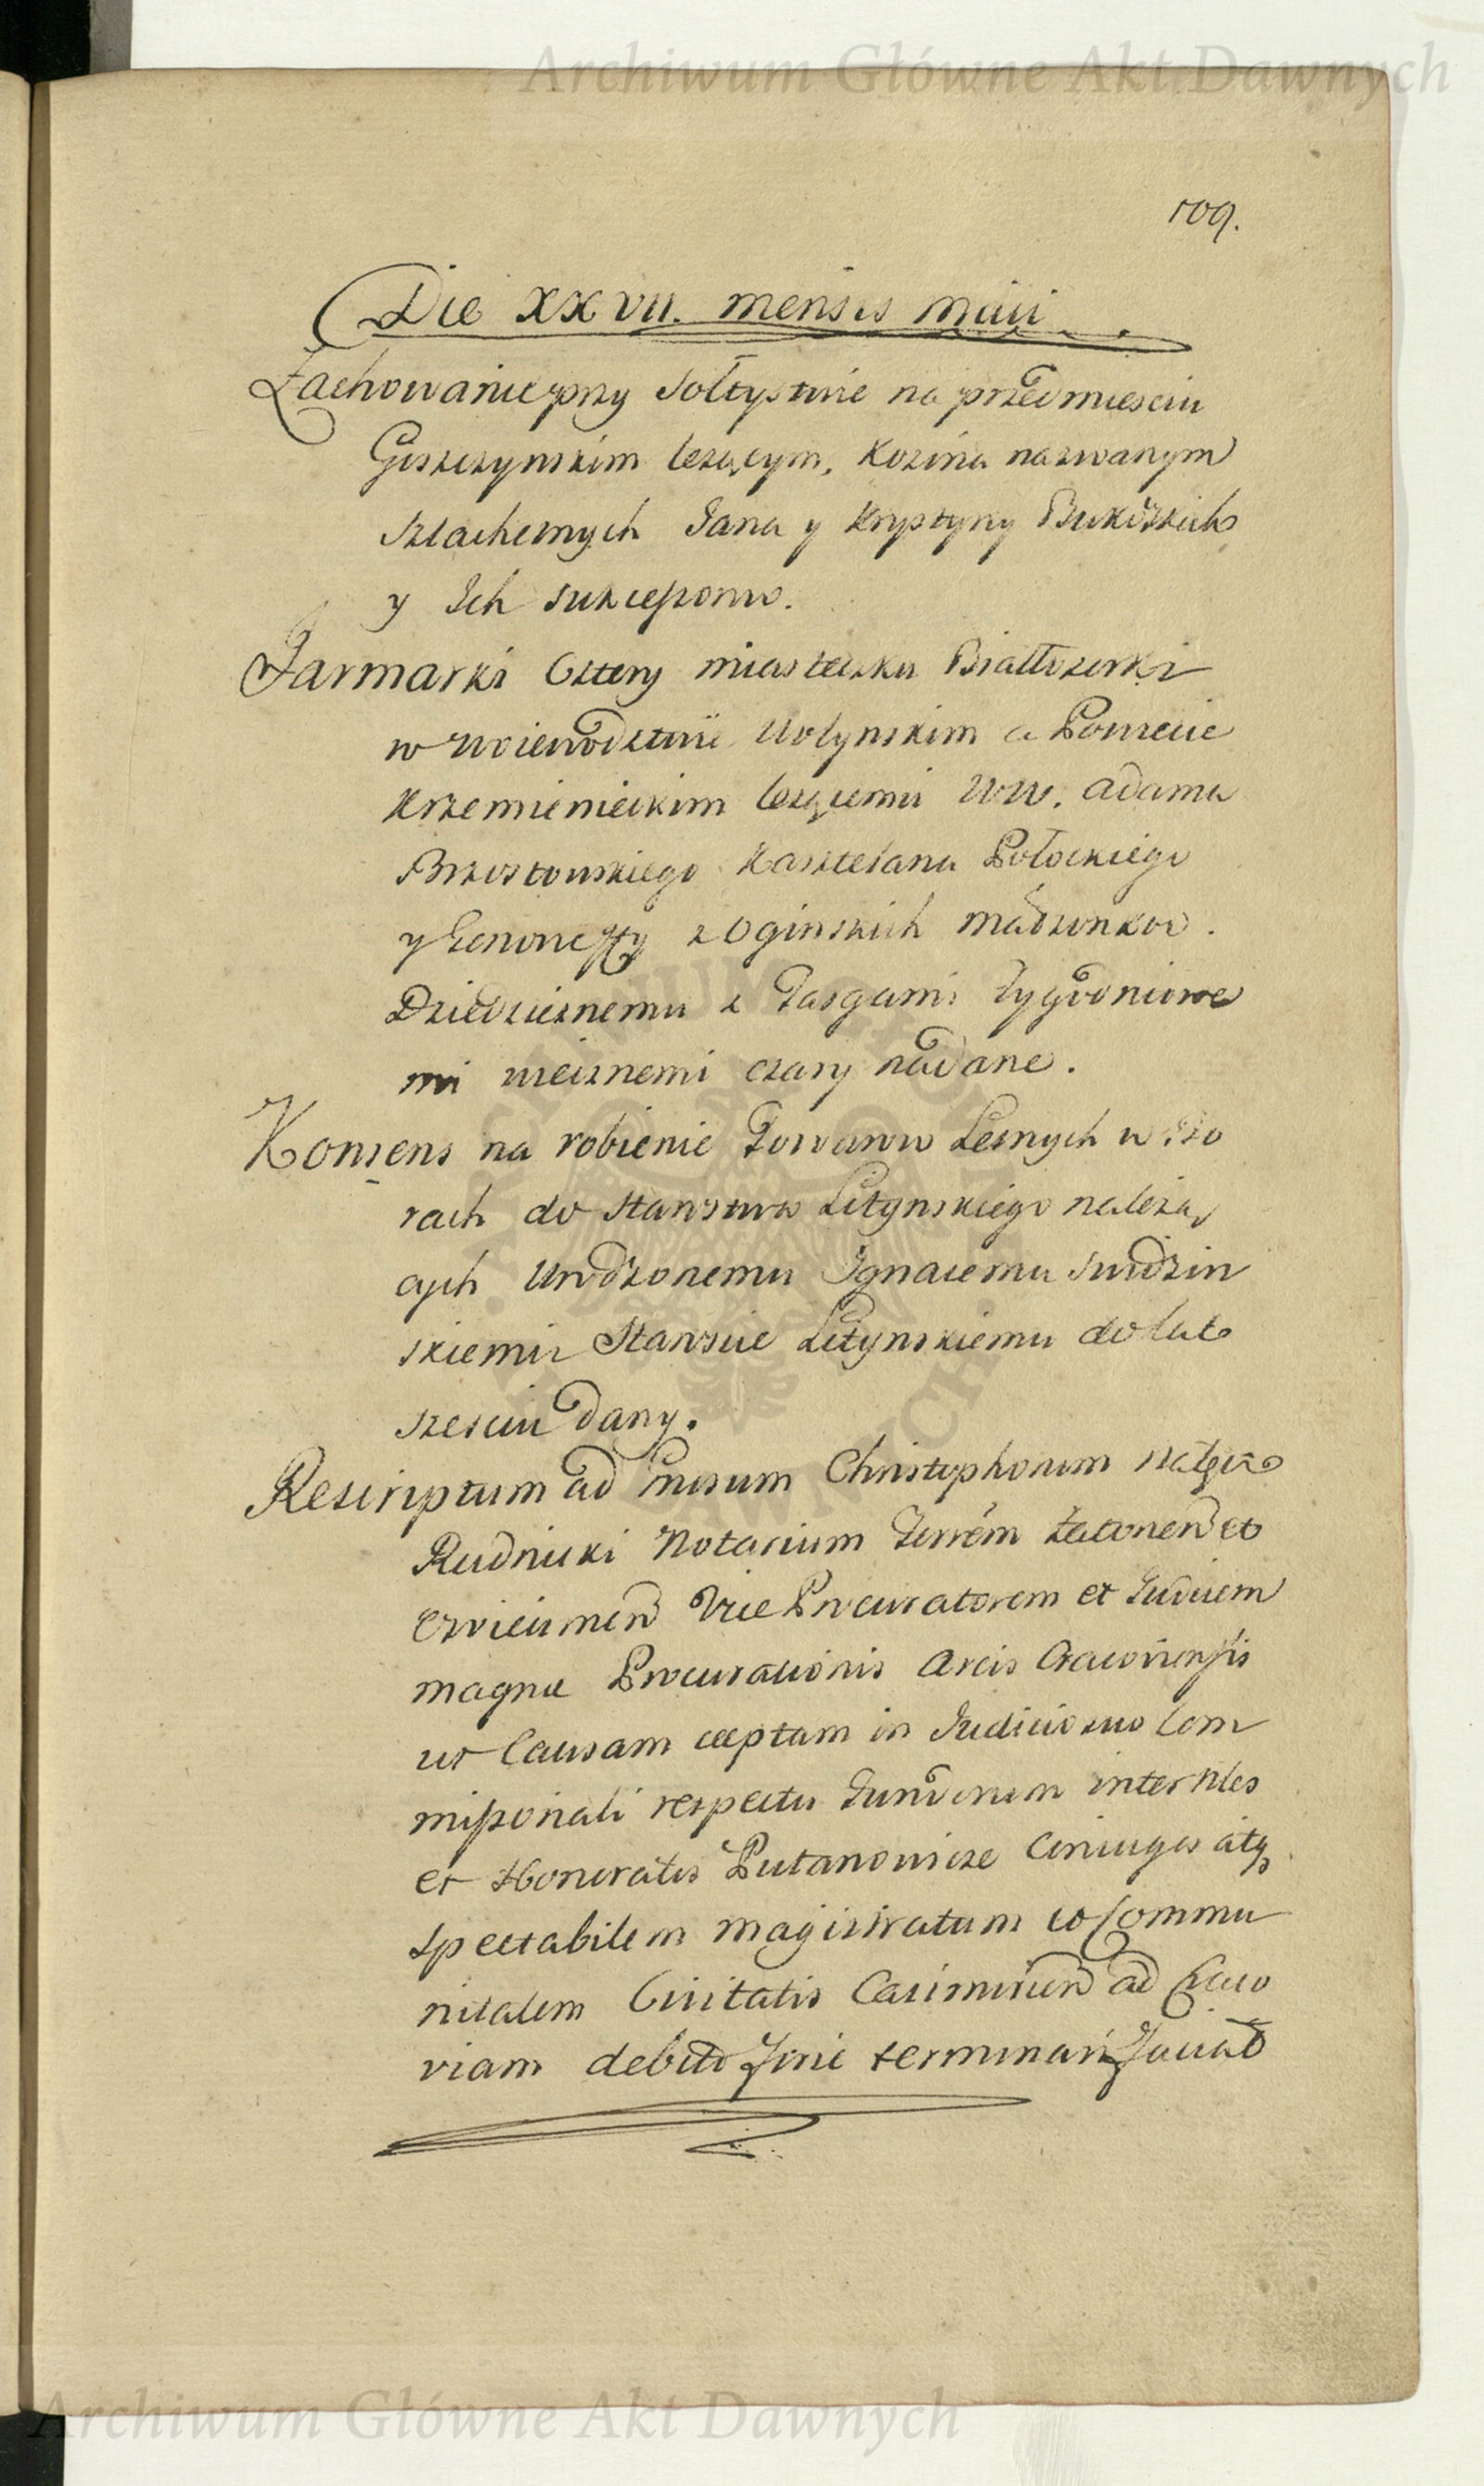 Archiwum Główne Akt Dawnych
109.
Die XXVII. mensis Maii
Zachowanie przy Sołtystwie na przedmiesciu
lezącym, Kozina nazwanym
Szlachetnych Jana y Krystyny
y Ich sukcessorow.
Jarmarki Cztery miasteczku Białłozorki
w Woiewodztwie Wołynskim a Powiecie
Krzemienieckim lezącemu WW. Adama
Brzostowskiego Kasztelana Połockiego
y Genowefy z Oginskich Małżonkow.
Dziedzicznemu z Targami Tygodniowe
mi wiecznemi czasy nadane.
Konsens na robienie Towarow Lesnych w Bo
rach do Starostwa Lityńskiego należą
cych Urodzonemu Ignacemu
skiemu Staroscie Lityńskiemu do lat
szesciu dany.
Rescriptum ad Gnrsum Christophorum
Rudnicki Notarium Terrem Zatorien et
Oswiecimen Vice Procuratorem et Judicem
magnae Procurationis Arcis Cracoviensis
ut Causam ceptam in Judicio suo Com
missionali respectu Fundorum inter Nles
et Honoratos Coniuges atq
spectabilem Magistratum et Commu
nitatem Civitatis Casimirien ad Craco
viam debito fine terminari faciat
Archiwum Główne Akt Dawnych